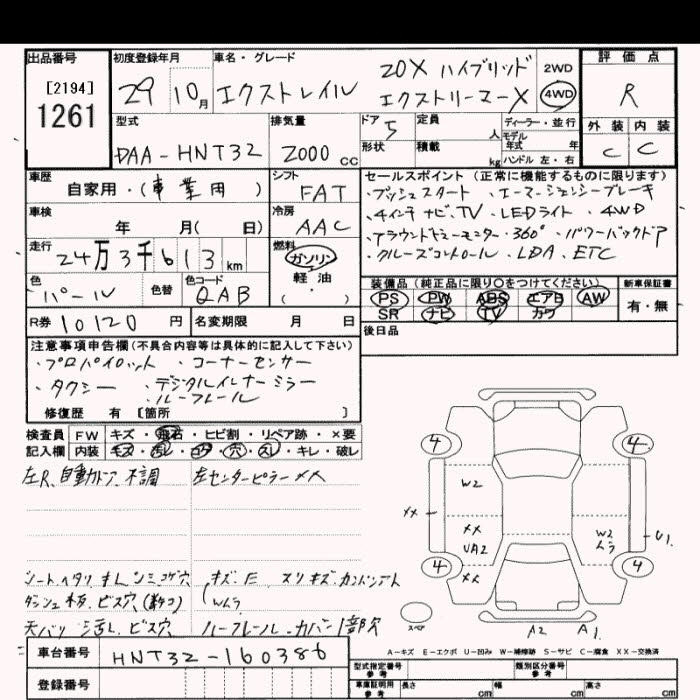 出品番号 初度登録年月 車名・グレード 評価点
[2194]
1261
29 10月 エクストレイル
20X ハイブリッド
エクストリーマーX
2WD
4WD
R
外装 内装
C C
型式 排気量 ドア 定員 ディーラー・並行
DAA-HNT32 2000 cc 5 人 モデル
年式 年
形状 積載 kg ハンドル 左・右
車歴 シフト セールスポイント(正常に機能するものに限ります)
自家用・(事業用) FAT
・プッシュスタート ・エマージェンシーブレーキ
・4インチ ナビ、TV ・LEDライト ・4WD
・アラウンドビューモニター・360° ・パワーバックドア
・クルーズコントロール ・LDA、ETC
車検 冷房
年 月( 日) AAC
走行 燃料
24万3千613 km ガソリン
軽油
( ・ )
色 色替 色コード
パール QAB
装備品(純正品に限り○をつけてください) 新車保証書
PS PW ABS エアB AW
SR ナビ TV カワ
有・無
R券 10120 円 名変期限 月 日
後日品
注意事項申告欄(不具合内容等は具体的に記入して下さい)
・プロパイロット ・コーナーセンサー
・タクシー ・デジタルインナーミラー
・ルーフレール
修復歴 有 [箇所 ]
検査員 FW キズ・飛石・ヒビ割・リペア跡・×要
記入欄 内装 キズ・汚レ・コゲ・穴・スレ・キレ・破レ
左R、自動ドア、不調 左センターピラーXX
シートヘタリ キレ シミ コゲ穴 キズ E スリキズ
ダッシュ ビス穴
Wムラ
天バリ 汚し、ビス穴 ルーフレール カバー1部欠
4 4
W2
XX
XX
UA2
W2
ムラ
U1
4 4
XX
スペア
A2 A1
A-キズ E-エクボ U-凹み W-補修跡 S-サビ C-腐食 XX-交換済
車台番号 HNT32-160386
登録番号
型式指定番号
参考
類別区分番号
参考
車庫証明用
参考
長さ cm 幅 cm 高さ cm